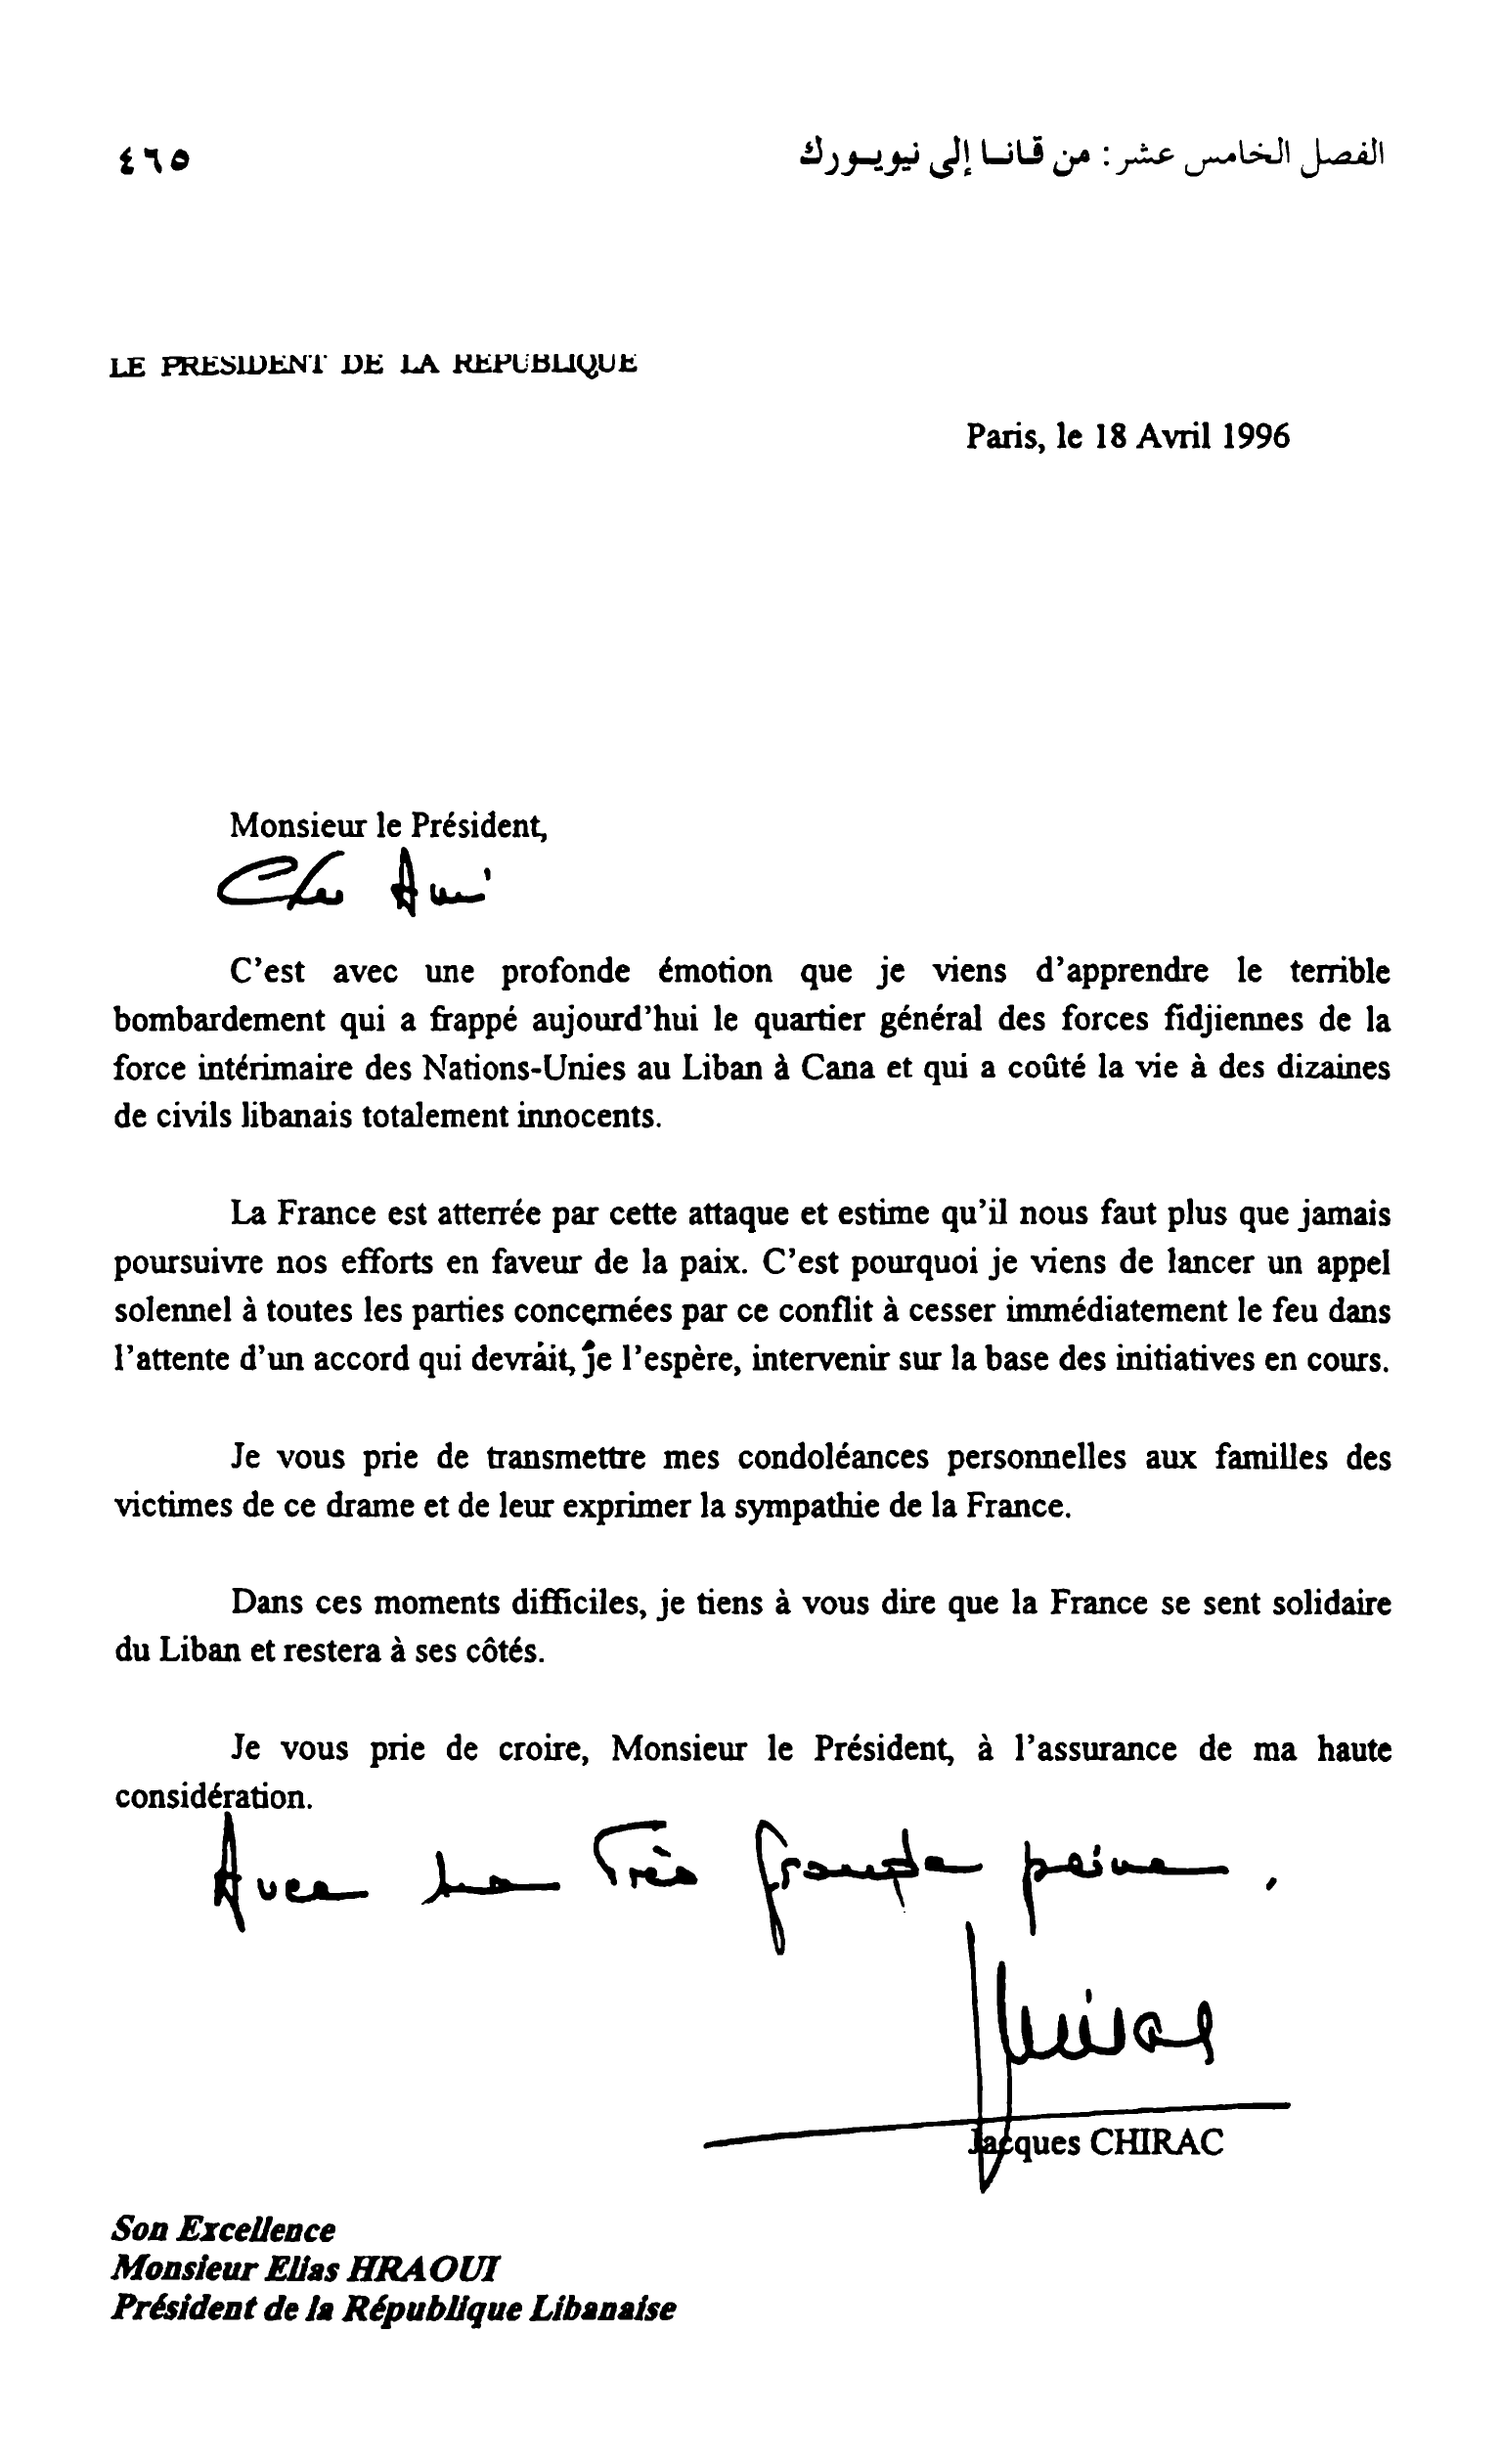 الفصل الخامس عشر : من قانا إلى نيويورك
٤٦٥
LE PRESIDENT DE LA REPUBLIQUE
Paris, le 18 Avril 1996
Monsieur le Président,
Cher Ami
C'est avec une profonde émotion que je viens d'apprendre le terrible
bombardement qui a frappé aujourd'hui le quartier général des forces fidjiennes de la
force intérimaire des Nations-Unies au Liban à Cana et qui a coûté la vie à des dizaines
de civils libanais totalement innocents.
La France est atterrée par cette attaque et estime qu'il nous faut plus que jamais
poursuivre nos efforts en faveur de la paix. C'est pourquoi je viens de lancer un appel
solennel à toutes les parties concernées par ce conflit à cesser immédiatement le feu dans
l'attente d'un accord qui devrait, je l'espère, intervenir sur la base des initiatives en cours.
Je vous prie de transmettre mes condoléances personnelles aux familles des
victimes de ce drame et de leur exprimer la sympathie de la France.
Dans ces moments difficiles, je tiens à vous dire que la France se sent solidaire
du Liban et restera à ses côtés.
Je vous prie de croire, Monsieur le Président, à l'assurance de ma haute
considération.
Avec ma Très grande peine.
Chirac
Jacques CHIRAC
Son Excellence
Monsieur Elias HRAOUI
Président de la République Libanaise